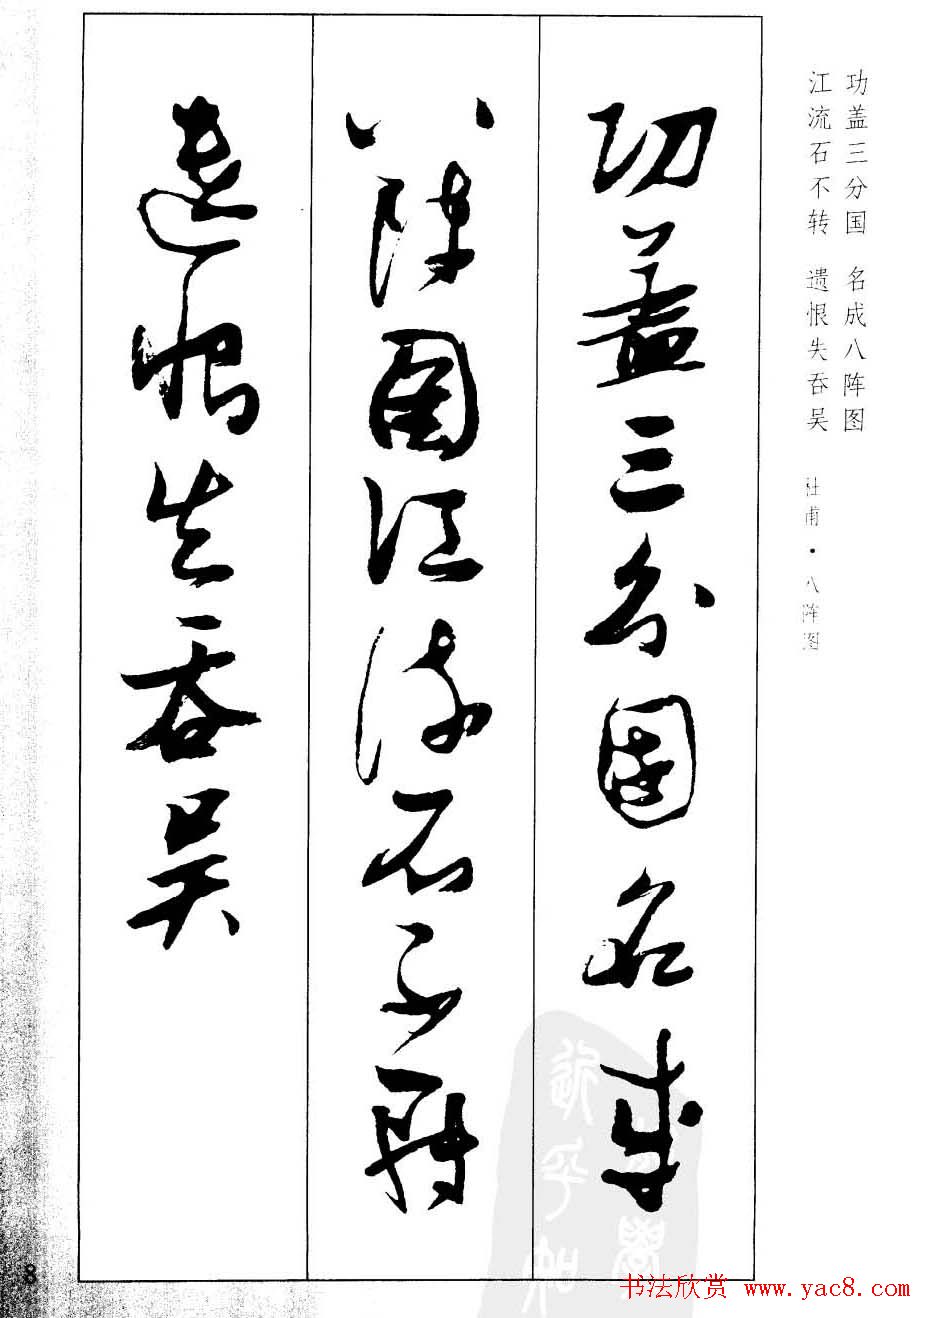 功盖三分国 名成八阵图
江流石不转 遗恨失吞吴
杜甫·八阵图
功蓋三分国名成
八陣图江流石不转
遗恨失吞吴
8
书法欣赏 www.yac8.com